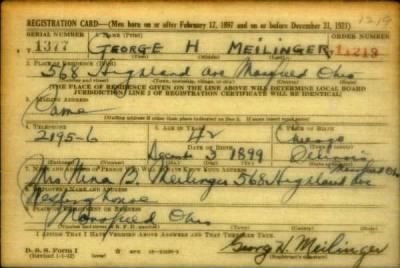 1219
REGISTRATION CARD—(Men born on or after February 17, 1897 and on or before December 31, 1921)
SERIAL NUMBER 1. NAME (Print) ORDER NUMBER
1377 GEORGE H MEILINGER 11219
2. PLACE OF RESIDENCE (Print)
568 Highland Ave Mansfield Ohio
[THE PLACE OF RESIDENCE GIVEN ON THE LINE ABOVE WILL DETERMINE LOCAL BOARD
JURISDICTION; LINE 2 OF REGISTRATION CERTIFICATE WILL BE IDENTICAL]
3. MAILING ADDRESS
Same
[Mailing address if other than place indicated on line 2. If same insert word same]
4. TELEPHONE 5. AGE IN YEARS 6. PLACE OF BIRTH
2195-6 42 Chicago
DATE OF BIRTH
December 3 1899 Illinois
7. NAME AND ADDRESS OF PERSON WHO WILL ALWAYS KNOW YOUR ADDRESS Mansfield Ohio
Mrs Nina B. Meilinger 568 Highland Ave
8. EMPLOYER'S NAME AND ADDRESS
Westinghouse
Mansfield Ohio
I AFFIRM THAT I HAVE VERIFIED ABOVE ANSWERS AND THAT THEY ARE TRUE.
D. S. S. Form 1
(Revised 1-1-42)
George H. Meilinger